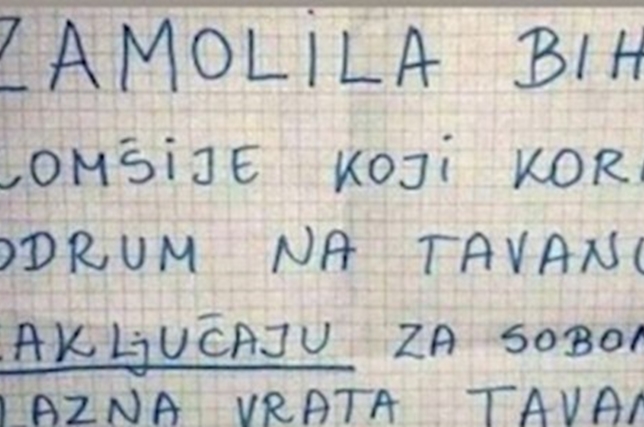 ZAMOLILA BIH
KOMŠIJE KOJI KORI
ODRUM NA TAVANU
ZAKLjUČAJU ZA SOBOM
LAZNA VRATA TAVAN